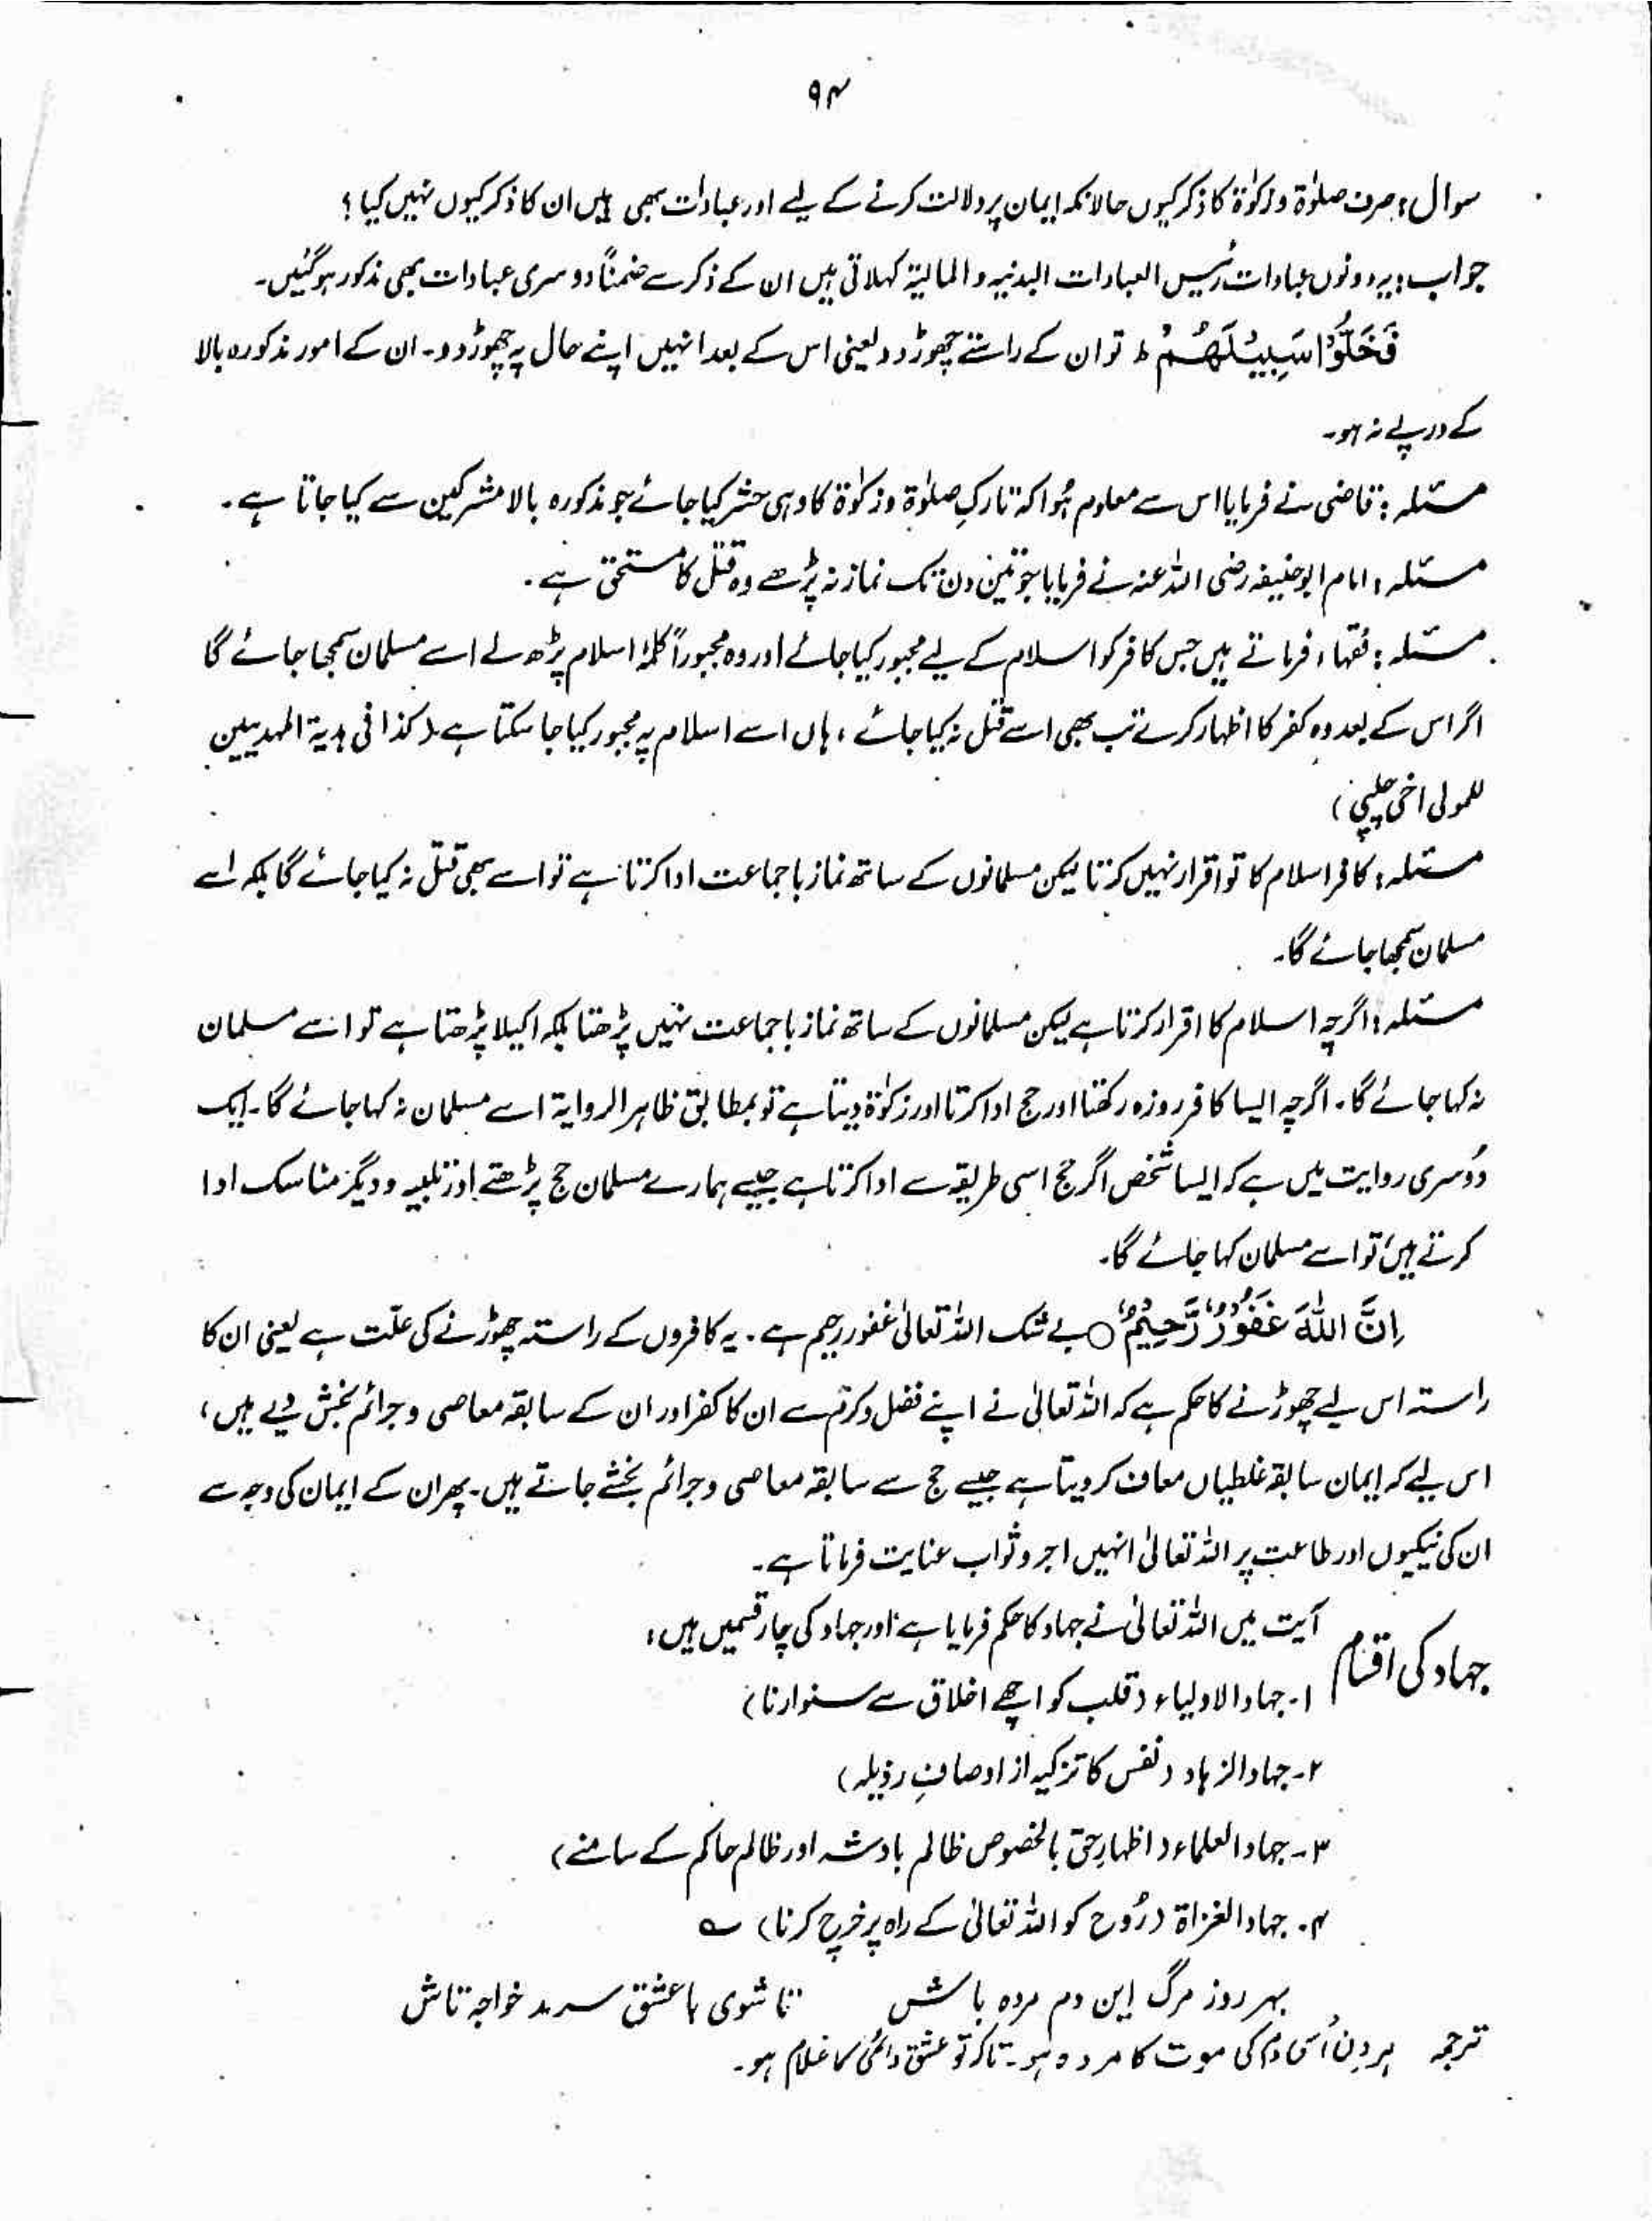 ۹۴
سوال: صرف صلوٰۃ و زکوٰۃ کا ذکر کیوں حالانکہ ایمان پر دلالت کرنے کے لیے اور عبادات بھی ہیں ان کا ذکر کیوں نہیں کیا ؟
جواب: یہ دونوں عبادات رئیس العبادات البدنیہ و المالیۃ کہلاتی ہیں ان کے ذکر سے ضمناً دوسری عبادات بھی مذکور ہو گئیں۔
فَخَلُّوْا سَبِیْلَهُمْ ط تو ان کے راستے چھوڑ دو یعنی اس کے بعد انہیں اپنے حال پہ چھوڑ دو۔ ان کے امور مذکورہ بالا
کے درپے نہ ہو۔
مسئلہ: قاضی نے فرمایا اس سے معلوم ہُوا کہ تارکِ صلوٰۃ و زکوٰۃ کا وہی حشر کیا جائے جو مذکورہ بالا مشرکین سے کیا جاتا ہے۔
مسئلہ: امام ابوحنیفہ رضی اللہ عنہ نے فرمایا جو تین دن تک نماز نہ پڑھے وہ قتل کا مستحق ہے۔
مسئلہ: فقہاء فرماتے ہیں جس کافر کو اسلام کے لیے مجبور کیا جائے اور وہ مجبوراً کلمۂ اسلام پڑھ لے اسے مسلمان سمجھا جائے گا
اگر اس کے بعد وہ کفر کا اظہار کرے تب بھی اسے قتل نہ کیا جائے ، ہاں اسے اسلام پہ مجبور کیا جا سکتا ہے (کذا فی ہدیۃ المہدیین
للمولی اخی چلپی)
مسئلہ: کافر اسلام کا تو اقرار نہیں کرتا لیکن مسلمانوں کے ساتھ نماز باجماعت ادا کرتا ہے تو اسے بھی قتل نہ کیا جائے گا بلکہ اسے
مسلمان سمجھا جائے گا۔
مسئلہ: اگرچہ اسلام کا اقرار کرتا ہے لیکن مسلمانوں کے ساتھ نماز باجماعت نہیں پڑھتا بلکہ اکیلا پڑھتا ہے تو اسے مسلمان
نہ کہا جائے گا۔ اگرچہ ایسا کافر روزہ رکھتا اور حج ادا کرتا اور زکوٰۃ دیتا ہے تو بمطابق ظاہر الروایۃ اسے مسلمان نہ کہا جائے گا۔ ایک
دوسری روایت میں ہے کہ ایسا شخص اگر حج اسی طریقہ سے ادا کرتا ہے جیسے ہمارے مسلمان حج پڑھتے اور تلبیہ و دیگر مناسک ادا
کرتے ہیں تو اسے مسلمان کہا جائے گا۔
اِنَّ اللّٰهَ غَفُوْرٌ رَّحِیْمٌ ○ بے شک اللہ تعالیٰ غفور رحیم ہے۔ یہ کافروں کے راستہ چھوڑنے کی علّت ہے یعنی ان کا
راستہ اس لیے چھوڑنے کا حکم ہے کہ اللہ تعالیٰ نے اپنے فضل و کرم سے ان کا کفر اور ان کے سابقہ معاصی و جرائم بخش دیے ہیں،
اس لیے کہ ایمان سابقہ غلطیاں معاف کر دیتا ہے جیسے حج سے سابقہ معاصی و جرائم بخشے جاتے ہیں۔ پھر ان کے ایمان کی وجہ سے
ان کی نیکیوں اور طاعت پر اللہ تعالیٰ انہیں اجر و ثواب عنایت فرماتا ہے۔
جہاد کی اقسام
آیت میں اللہ تعالیٰ نے جہاد کا حکم فرمایا ہے اور جہاد کی چار قسمیں ہیں:
۱۔ جہاد الاولیاء (قلب کو اچھے اخلاق سے سنوارنا)
۲۔ جہاد الزہاد (نفس کا تزکیہ از اوصافِ رذیلہ)
۳۔ جہاد العلماء (اظہارِ حق بالخصوص ظالم بادشہ اور ظالم حاکم کے سامنے)
۴۔ جہاد الغزاۃ (رُوح کو اللہ تعالیٰ کے راہ پر خرچ کرنا) ؎
بہر روز مرگ این دم مردہ باش تا شوی با عشق سرمد خواجہ تاش
ترجمہ ہر دن اُسی دم کی موت کا مردہ ہو۔ تاکہ تو عشق دائمی کا غلام ہو۔